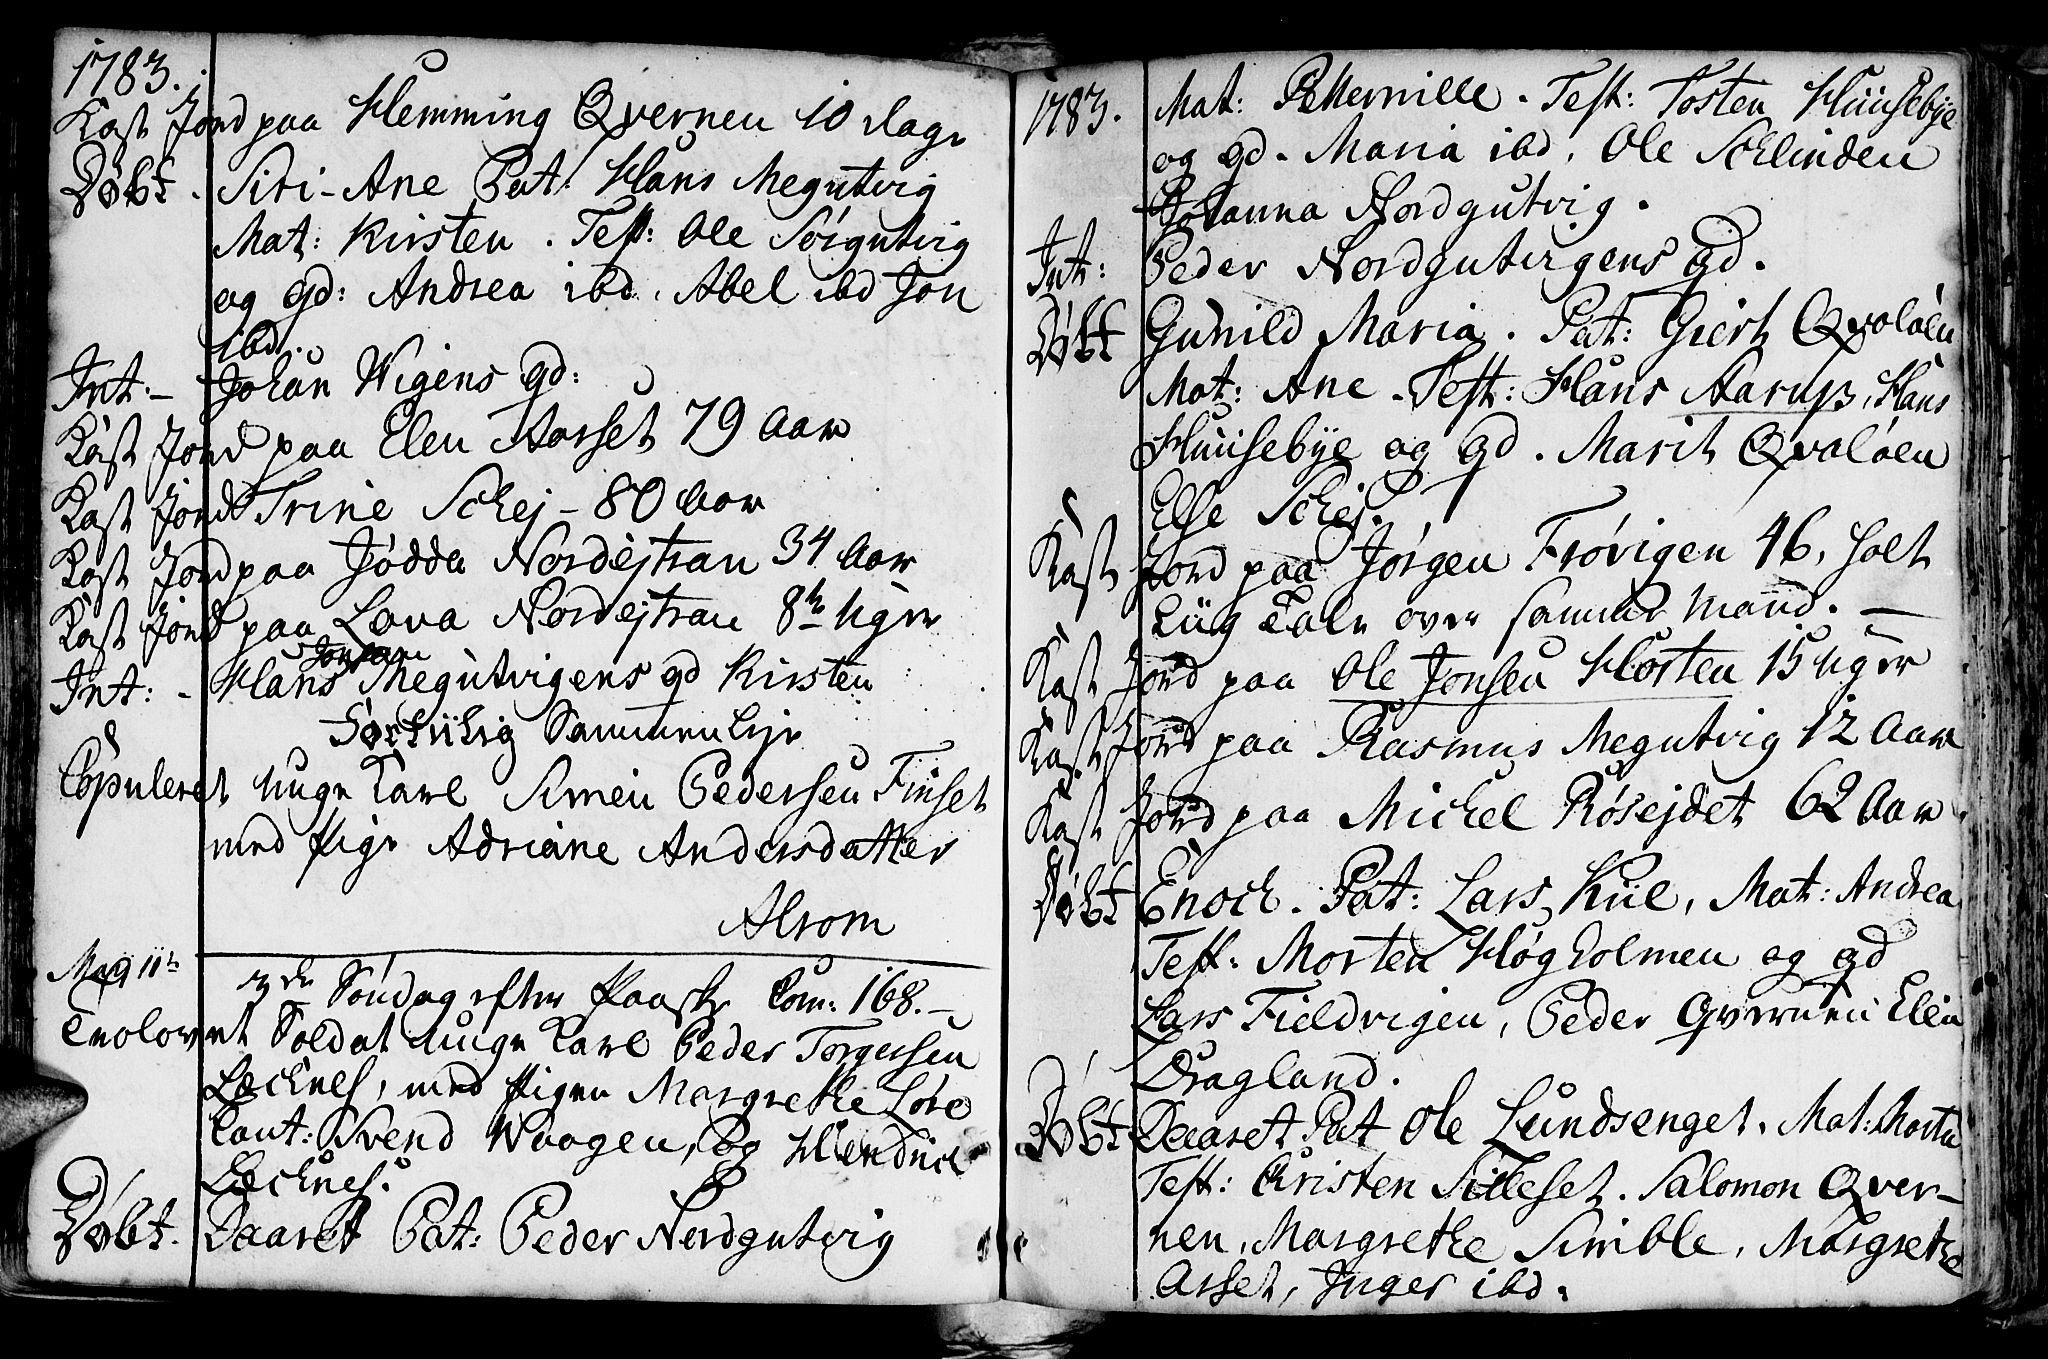 1783.
Kast Jord paa Hemming Qvernen 10 dage
Døbt. Siri-Ane Pat: Hans Megutvig
Mat: Kirsten. Test: Ole Sørgutvig
og gd: Andrea ibd, Abel ibd Jon
ibd.
Int:- Johan Wigens gd:
Kast Jord paa Elen Aarset 79 Aar
Kast Jord Trine Schej - 80 Aar
Kast Jord paa Jødda Nordejtran 34 Aar
Kast Jord paa Lava Nordejtran 8te Uger
Jonsøn
Int: - Hans Megutvigens gd Kirsten
Sammenleje
Copuleret unge Karl Simen Pedersen Finset
med Pige Adriane Andersdatter
Alrom
May 11te 3de Søndag efter Paaske Com: 168.-
Trolovet Soldat unge Karl Peder Torgersen
Lecknes, med Pigen Margrethe Løse
Caut: Svend Waagen, og Hendrick
Lecknes.
Døbt. Daaret Pat: Peder Nordgutvig
1783. Mat: Petternille. Test: Tosten Huusebye
og gd. Maria ibd, Ole Schlinden
Johanna Nordgutvig.
Int: Peder Nordgutvigens gd.
Døbt Gunild Maria. Pat: Giert Qvaløen
Mat: Ane. Test: Hans Aarup, Hans
Huusebye og gd. Marit Qvaløen
Else Schej.
Kast Jord paa Jørgen Frøvigen 46, holt
Liig Tale over samme Mand. -
Kast Jord paa Ole Jonsen Hosten 15 Uger
Kast Jord paa Rasmus Megutvig 12 Aar
Kast Jord paa Michel Røsejdet 62 Aar
Døbt Enoch. Pat: Lars Kiil, Mat: Andrea
Test: Morten Høgholmen og gd
Lars Fieldvigen, Peder Qvernen Elen
Dragland.
Døbt Daaret Pat Ole Lundsenget. Mat: Marta
Test: Christen Silleset. Salomon Qver-
nen, Margrethe Simble, Margrethe
Asset, Inger ibd.